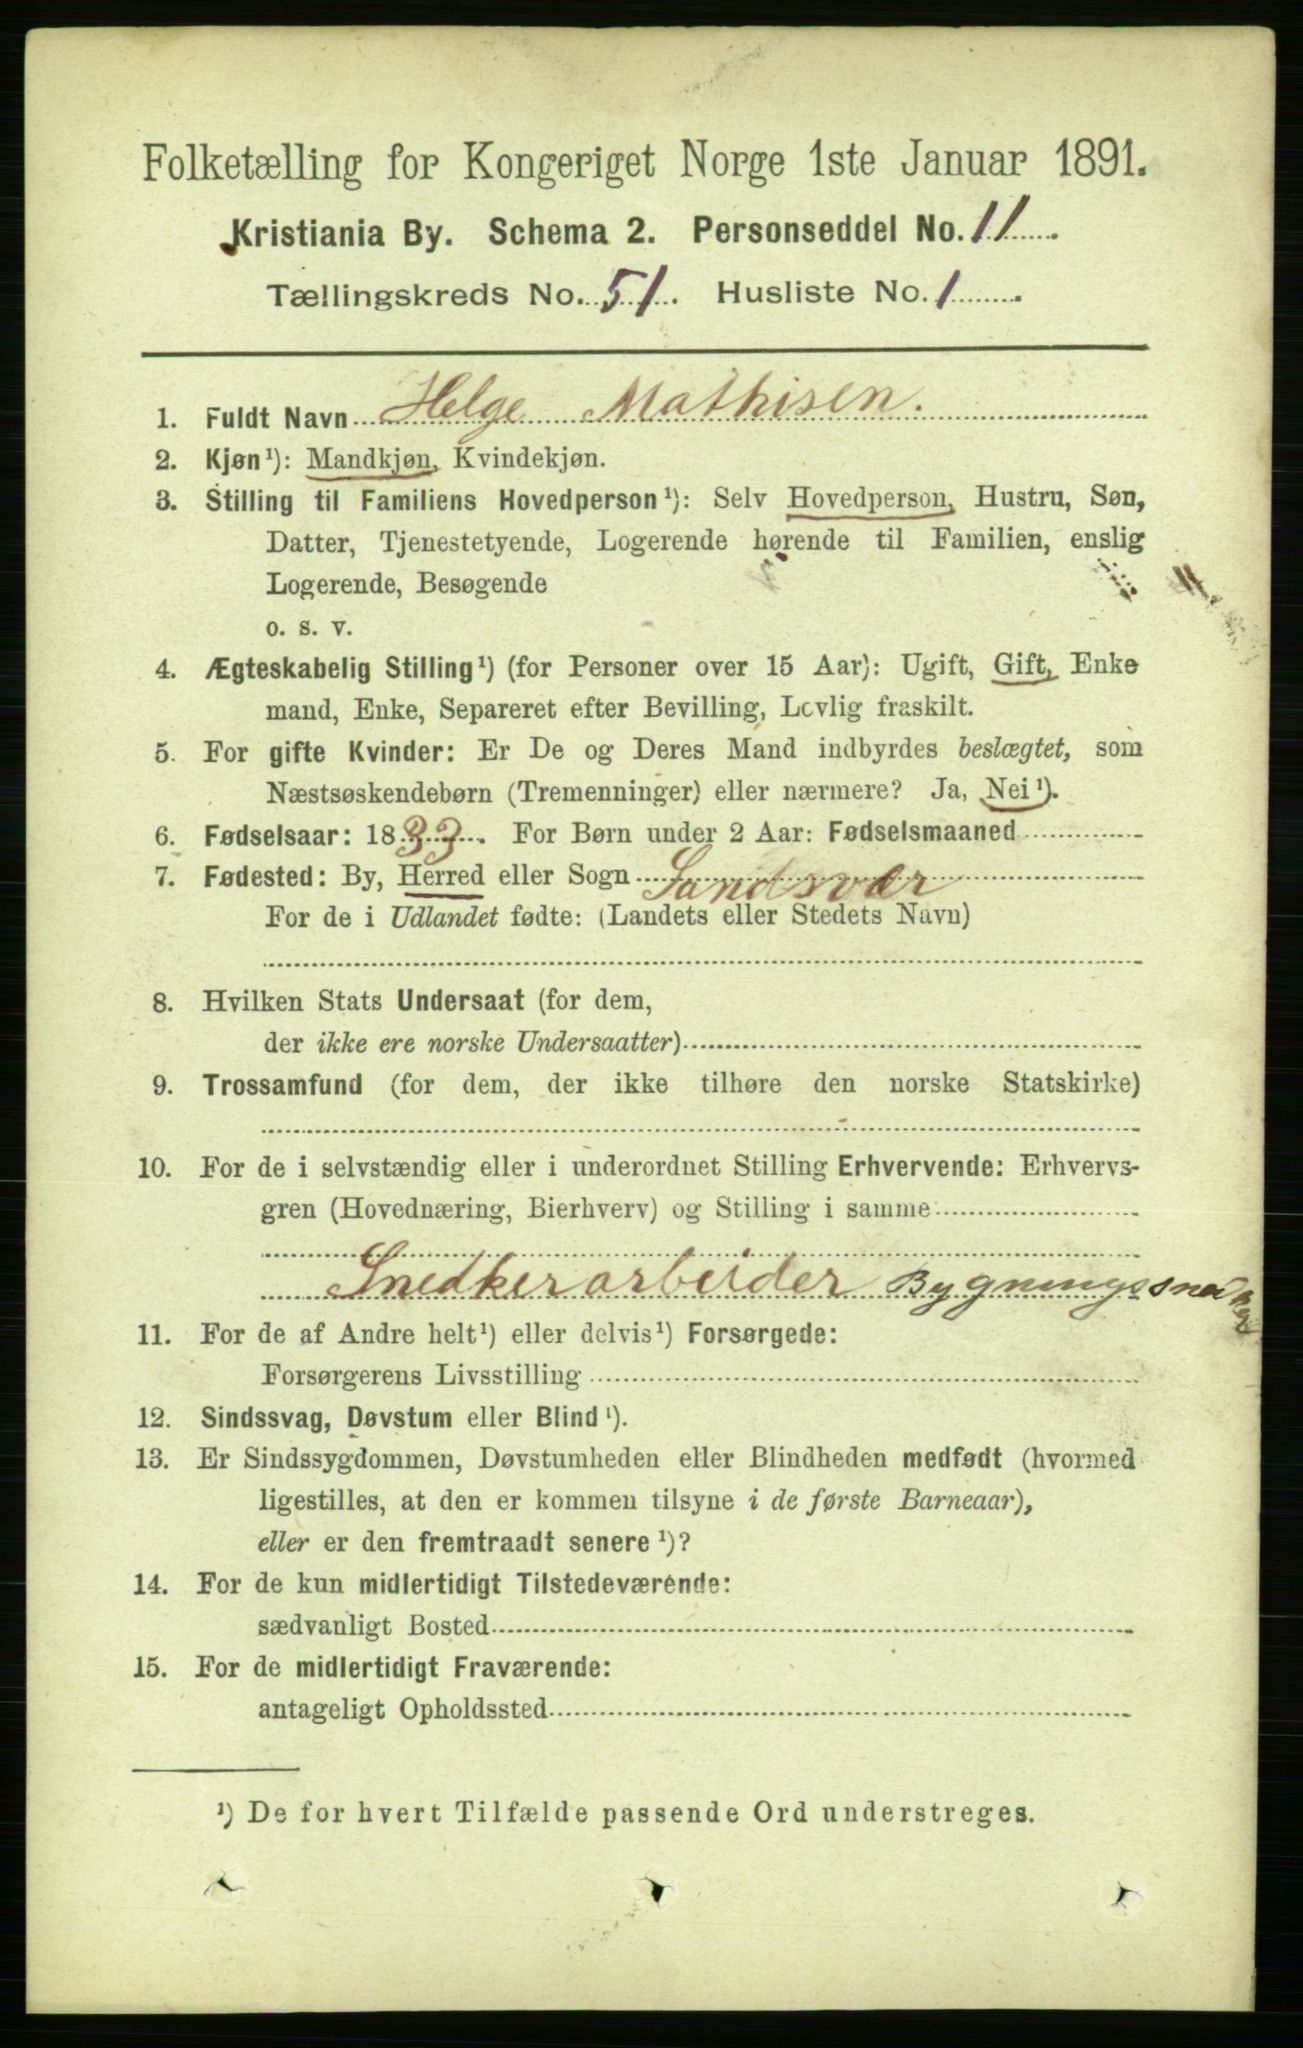 Folketælling for Kongeriget Norge 1ste Januar 1891.
Kristiania By. Schema 2. Personseddel No. 11.
Tællingskreds No. 51. Husliste No. 1.
1. Fuldt Navn Helge Mathisen.
2. Kjøn¹): Mandkjøn, Kvindekjøn.
3. Stilling til Familiens Hovedperson¹): Selv Hovedperson, Hustru, Søn,
Datter, Tjenestetyende, Logerende hørende til Familien, enslig
Logerende, Besøgende
o. s. v.
4. Ægteskabelig Stilling¹) (for Personer over 15 Aar): Ugift, Gift, Enke
mand, Enke, Separeret efter Bevilling, Lovlig fraskilt.
5. For gifte Kvinder: Er De og Deres Mand indbyrdes beslægtet, som
Næstsøskendebørn (Tremenninger) eller nærmere? Ja, Nei¹).
6. Fødselsaar: 1833. For Børn under 2 Aar: Fødselsmaaned
7. Fødested: By, Herred eller Sogn Sandsvær
For de i Udlandet fødte: (Landets eller Stedets Navn)
8. Hvilken Stats Undersaat (for dem,
der ikke ere norske Undersaatter)
9. Trossamfund (for dem, der ikke tilhøre den norske Statskirke)
10. For de i selvstændig eller i underordnet Stilling Erhvervende: Erhvervs-
gren (Hovednæring, Bierhverv) og Stilling i samme
Snedkerarbeider Bygningssnedker
11. For de af Andre helt¹) eller delvis¹) Forsørgede:
Forsørgerens Livsstilling
12. Sindssvag, Døvstum eller Blind¹).
13. Er Sindssygdommen, Døvstumheden eller Blindheden medfødt (hvormed
ligestilles, at den er kommen tilsyne i de første Barneaar),
eller er den fremtraadt senere¹)?
14. For de kun midlertidigt Tilstedeværende:
sædvanligt Bosted
15. For de midlertidigt Fraværende:
antageligt Opholdssted
¹) De for hvert Tilfælde passende Ord understreges.